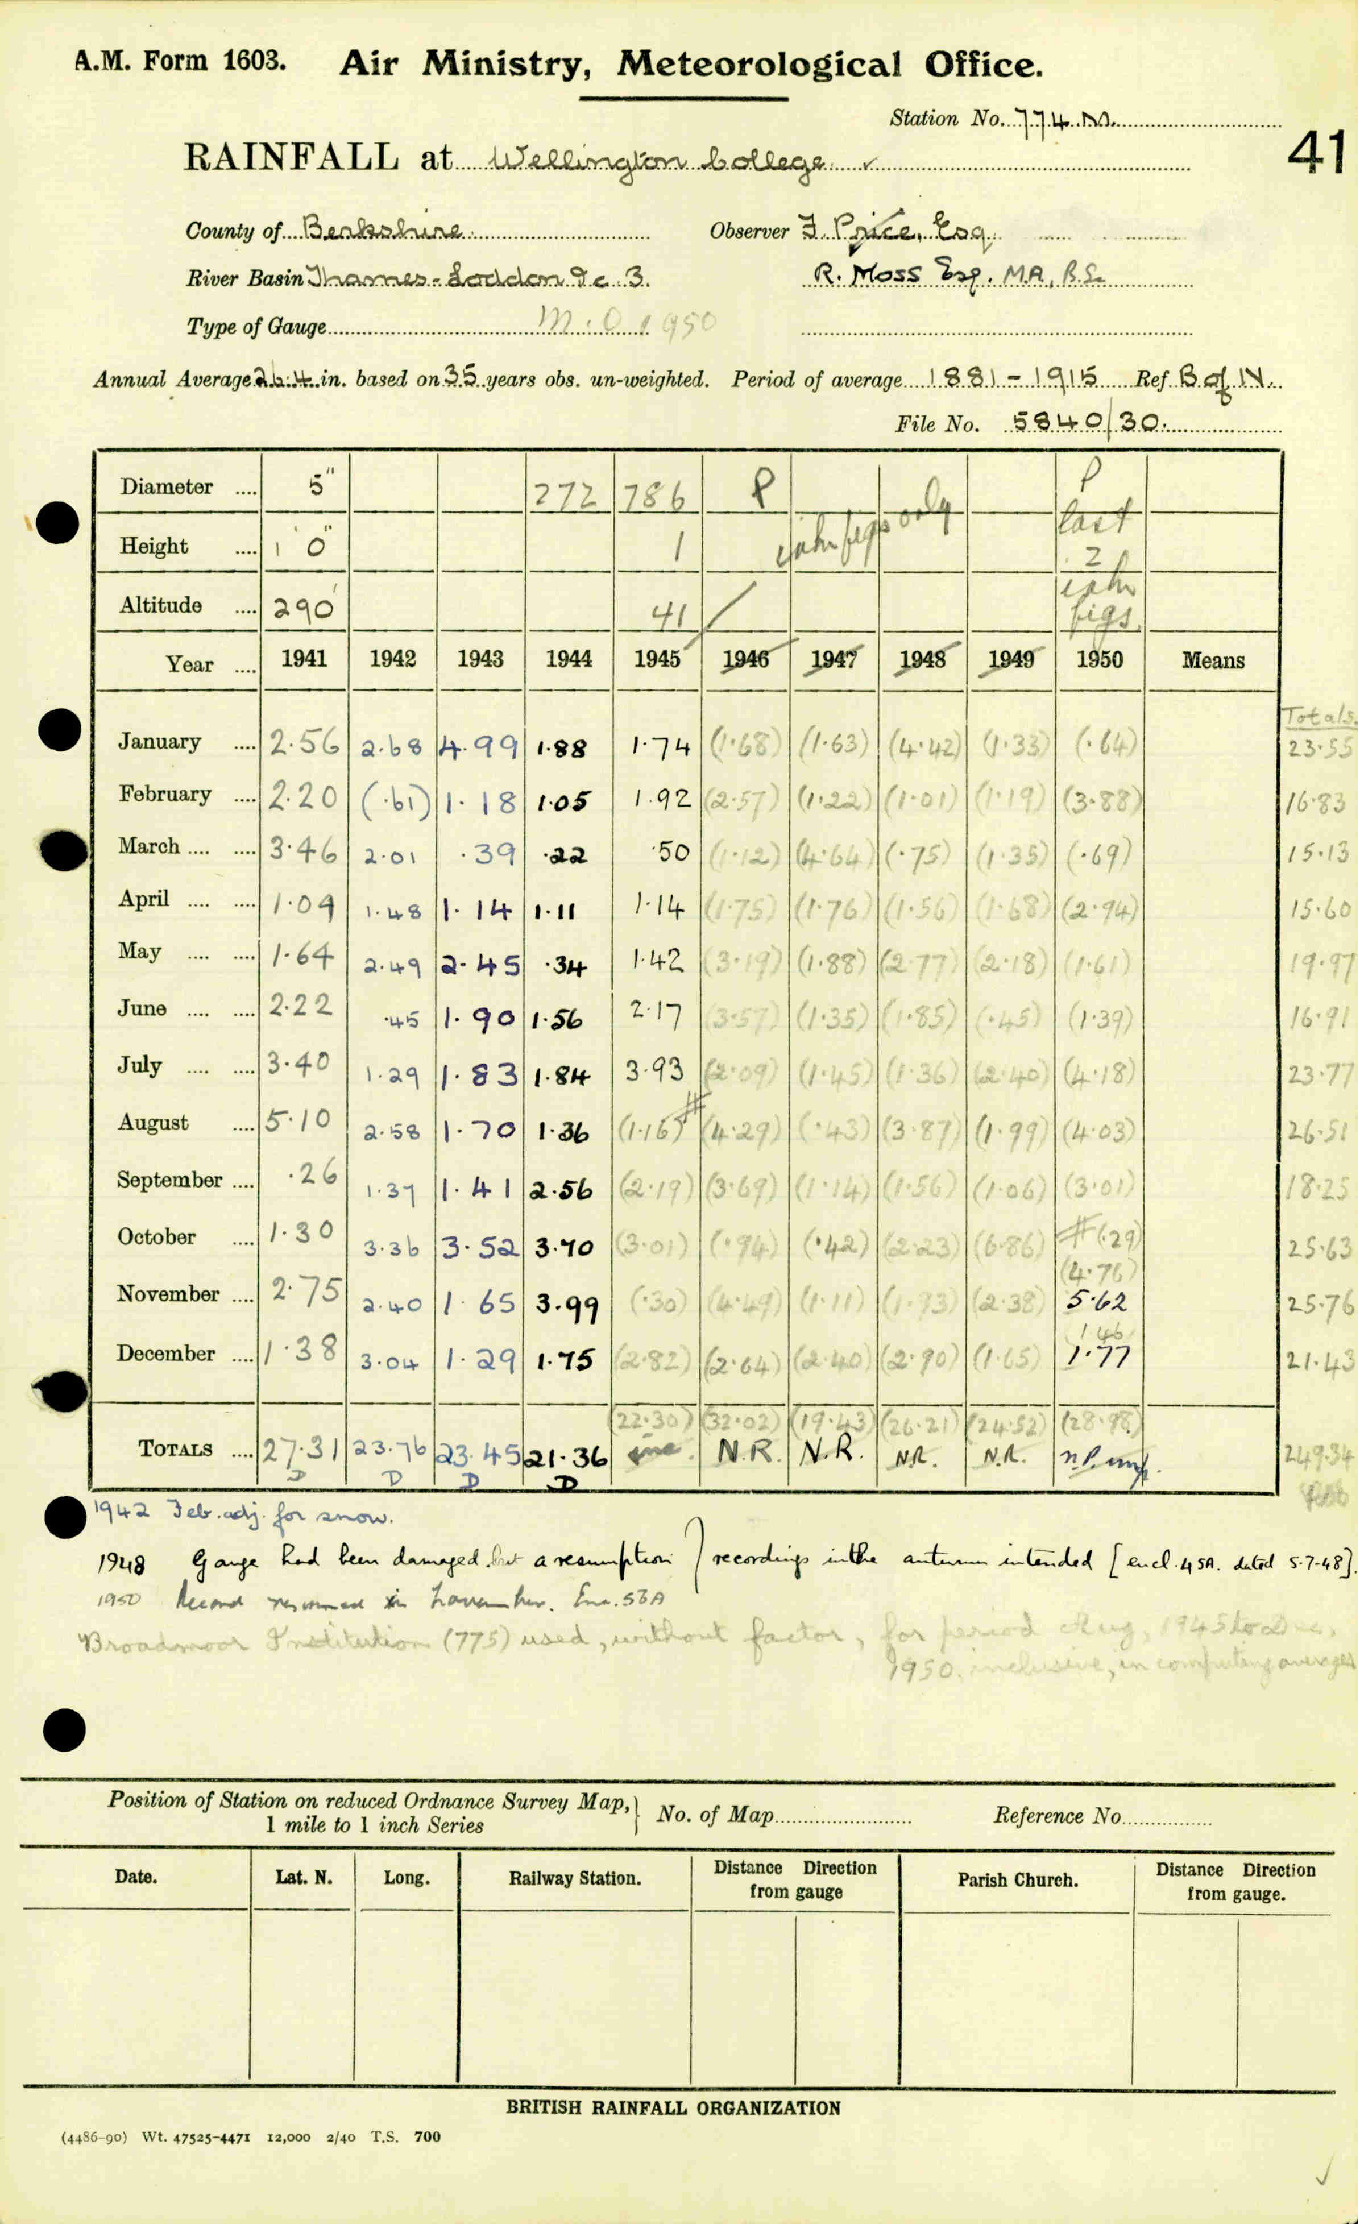 A.M. Form 1603. Air Ministry, Meteorological Office.
Station No. 774.M.
41
RAINFALL at Wellington College ✓
County of Berkshire Observer F. Price, Esq.
River Basin Thames-Loddon &c. 3. R. Moss Esq. MA, B.Sc
Type of Gauge M.O 1950
Annual Average 26.4 in. based on 35 years obs. un-weighted. Period of average 1881-1915 Ref B of N.
File No. 5840/30.
Diameter .... 5" 272 786 P P
Height .... 1' 0" 1 figs only last 2
Altitude .... 290' 41 figs.
Year .... 1941 1942 1943 1944 1945 1946 1947 1948 1949 1950 Means
Totals.
January .... 2.56 2.68 4.99 1.88 1.74 (1.68) (1.63) (4.42) (1.33) (.64) 23.55
February .... 2.20 (.61) 1.18 1.05 1.92 (2.57) (1.22) (1.01) (1.19) (3.88) 16.83
March .... .... 3.46 2.01 .39 .22 .50 (1.12) (4.64) (.75) (1.35) (.69) 15.13
April .... .... 1.09 1.48 1.14 1.11 1.14 (1.75) (1.76) (1.56) (1.68) (2.94) 15.60
May .... .... 1.64 2.49 2.45 .34 1.42 (3.19) (1.88) (2.77) (2.18) (1.61) 19.97
June .... .... 2.22 .45 1.90 1.56 2.17 (3.57) (1.35) (1.85) (.45) (1.39) 16.91
July .... .... 3.40 1.29 1.83 1.84 3.93 (2.09) (1.45) (1.36) (2.40) (4.18) 23.77
August .... 5.10 2.58 1.70 1.36 (1.16) # (4.29) (.43) (3.87) (1.99) (4.03) 26.51
September .... .26 1.37 1.41 2.56 (2.19) (3.69) (1.14) (1.56) (1.06) (3.01) 18.25
October .... 1.30 3.36 3.52 3.70 (3.01) (.94) (.42) (2.23) (6.86) # (.29) 25.63
(4.76)
November .... 2.75 2.40 1.65 3.99 (.30) (4.49) (1.11) (1.93) (2.38) 5.62 25.76
1.46
December .... 1.38 3.04 1.29 1.75 (2.82) (2.64) (2.40) (2.90) (1.65) 1.77 21.43
(22.30) (32.02) (19.43) (26.21) (24.52) (28.98)
TOTALS .... 27.31 23.76 23.45 21.36 inc. N.R. N.R. N.R. N.R. 249.34
D D D D
1942 Feb. adj. for snow.
1948 Gauge had been damaged but a resumption of recordings in the autumn intended [encl. 45A. dated 5-7-48].
1950 Record resumed in November. Enc. 53A
Broadmoor Institution (775) used, without factor, for period Aug, 1945 to Dec,
1950, inclusive, in computing averages
Position of Station on reduced Ordnance Survey Map, 1 mile to 1 inch Series } No. of Map Reference No.
Date. Lat. N. Long. Railway Station. Distance Direction from gauge Parish Church. Distance Direction from gauge.
BRITISH RAINFALL ORGANIZATION
(4486-90) Wt. 47525-4471 12,000 2/40 T.S. 700